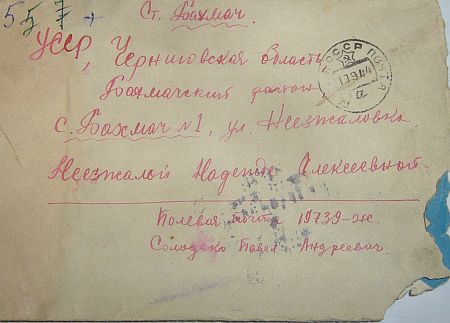 557+
Ст. Бахмач.
УССР, Черниговская область
Бахмачский район
с. Бахмач №1, ул. Неезжаловка
Неезжалой Надежде Алексеевной
Полевая почта 19739-ж.
Солодко Павел Андреевич.
СССР ПОЧТА